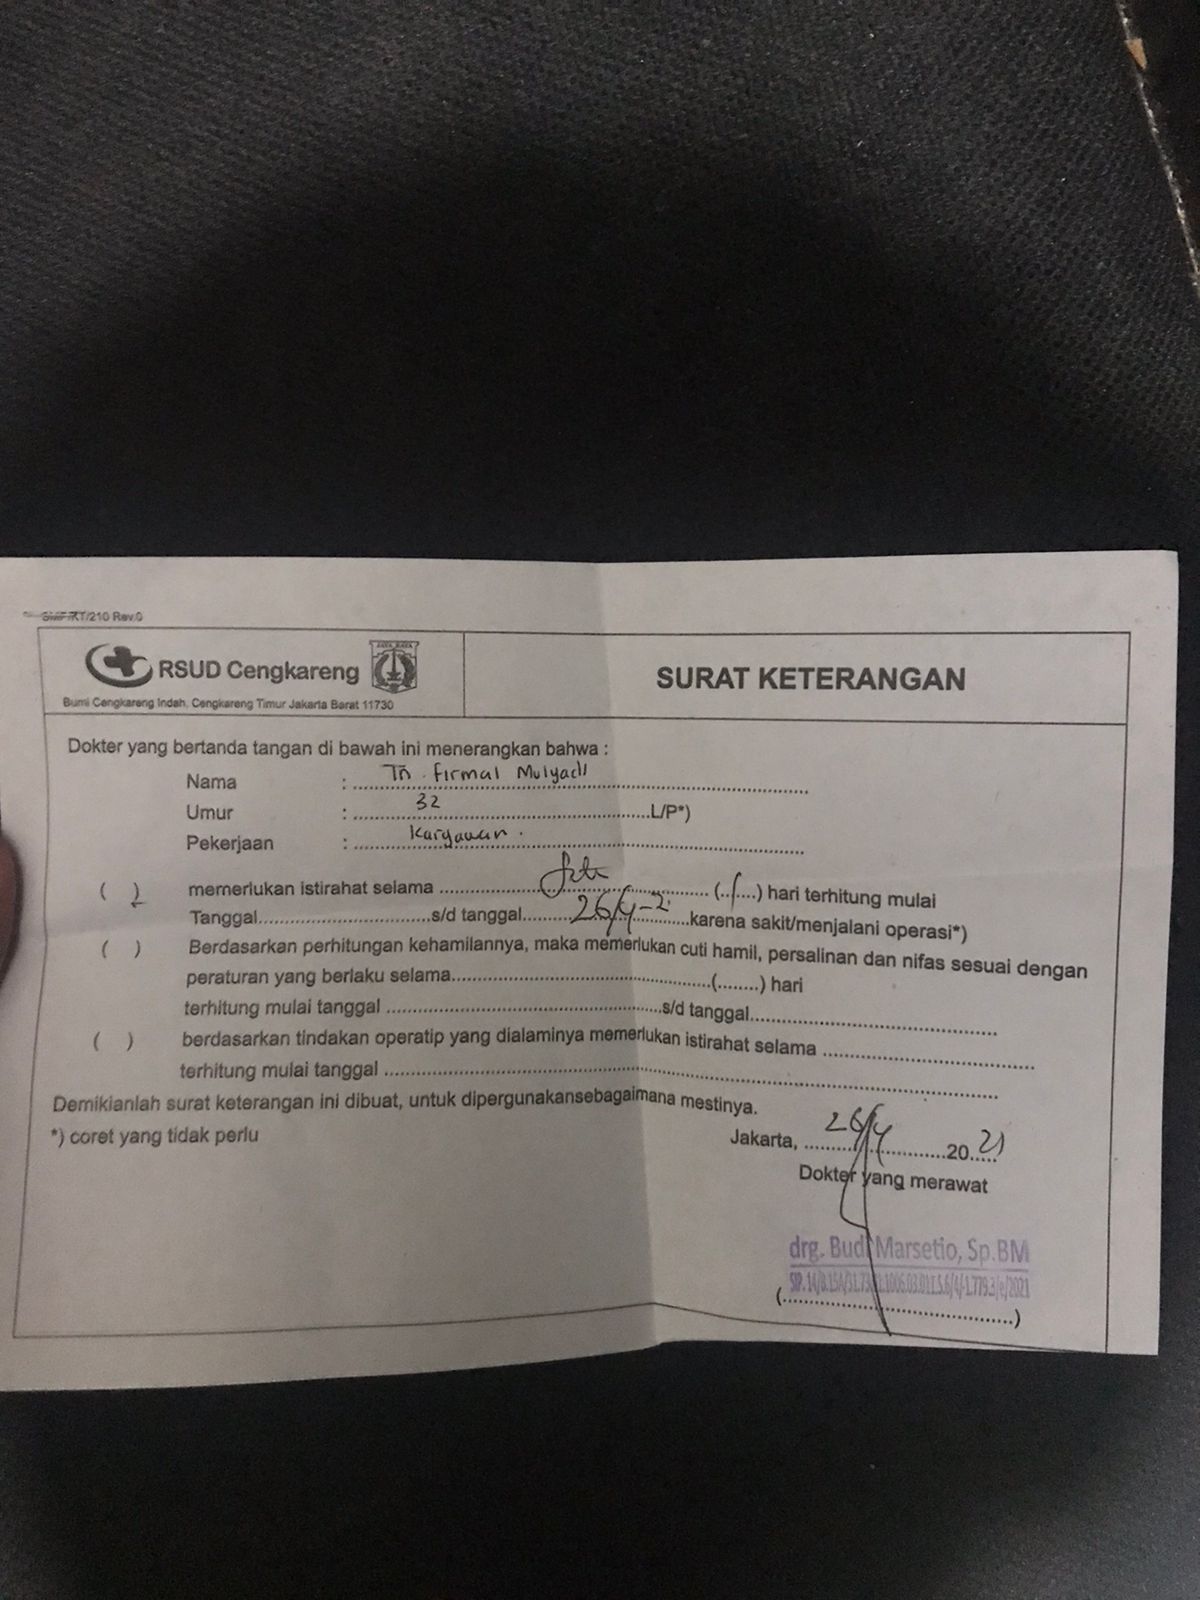 SMF/RT/210 Rev.0
RSUD Cengkareng
JAYA RAYA
Bumi Cengkareng Indah, Cengkareng Timur Jakarta Barat 11730
SURAT KETERANGAN
Dokter yang bertanda tangan di bawah ini menerangkan bahwa :
Nama : Tn. Firmal Mulyadi
Umur : 32 L/P*)
Pekerjaan : Karyawan.
( ) memerlukan istirahat selama (.....) hari terhitung mulai
Tanggal..............................s/d tanggal 26/4-2 karena sakit/menjalani operasi*)
( ) Berdasarkan perhitungan kehamilannya, maka memerlukan cuti hamil, persalinan dan nifas sesuai dengan
peraturan yang berlaku selama..............................(........) hari
terhitung mulai tanggal ..............................s/d tanggal..............................
( ) berdasarkan tindakan operatip yang dialaminya memerlukan istirahat selama ..............................
terhitung mulai tanggal ..............................
Demikianlah surat keterangan ini dibuat, untuk dipergunakansebagaimana mestinya.
*) coret yang tidak perlu
Jakarta, 26/4 2021
Dokter yang merawat
drg. Budi Marsetio, Sp.BM
(..............................)